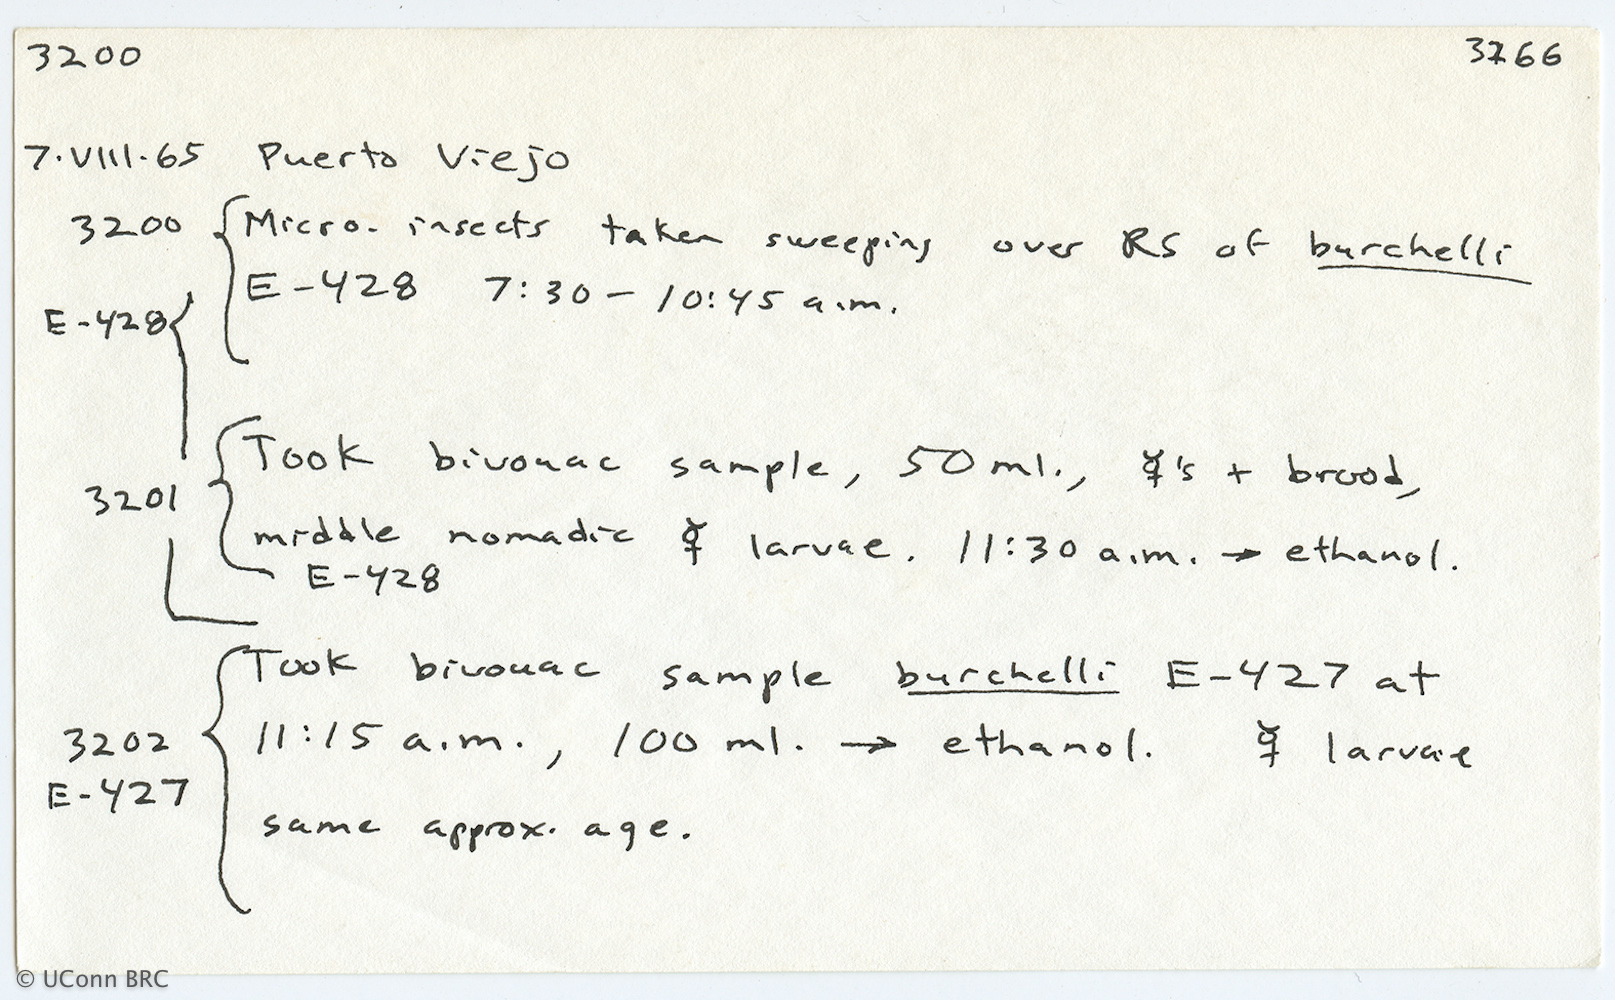 3200 3266
7·VIII·65 Puerto Viejo
3200 { Micro. insects taken sweeping over RS of burchelli
E-428 7:30 – 10:45 a.m.
E-428 {
3201 { Took bivouac sample, 50 ml., ☿'s + brood,
middle nomadic ☿ larvae. 11:30 a.m. → ethanol.
E-428
3202 { Took bivouac sample burchelli E-427 at
E-427 11:15 a.m., 100 ml. → ethanol. ☿ larvae
same approx. age.
© UConn BRC